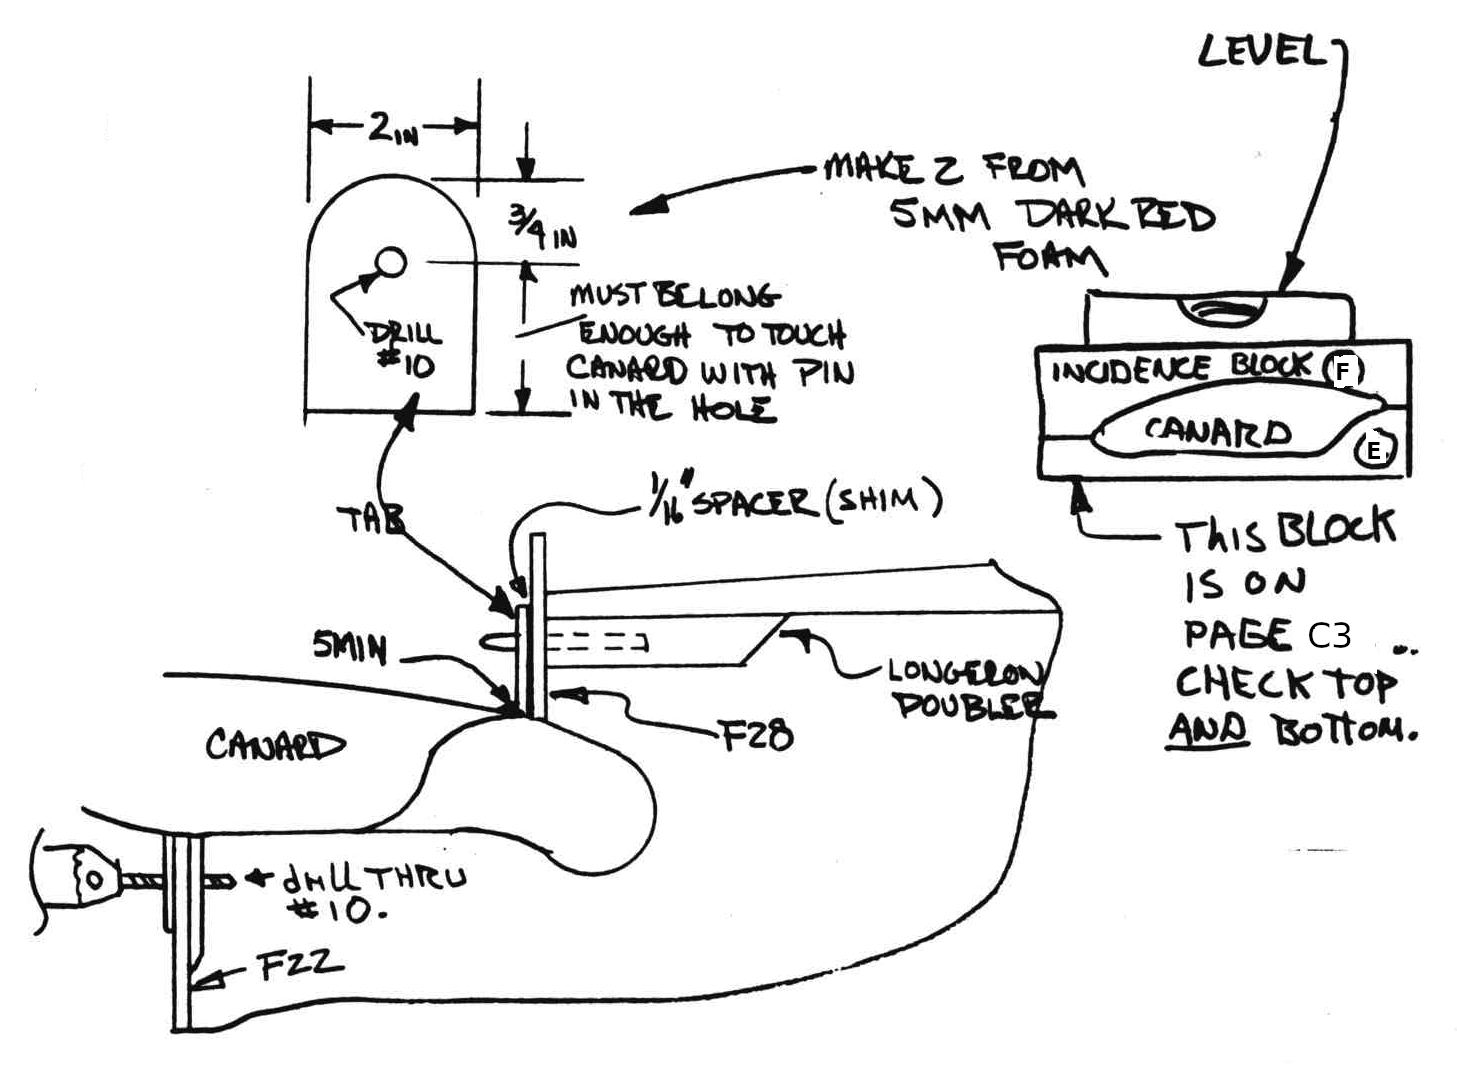 LEVEL
2 IN
MAKE 2 FROM
5MM DARK RED
FOAM
3/4 IN
MUST BE LONG
ENOUGH TO TOUCH
CANARD WITH PIN
IN THE HOLE
DRILL
#10
INCIDENCE BLOCK F
CANARD
E
TAB
1/16" SPACER (SHIM)
THIS BLOCK
IS ON
PAGE C3 ...
CHECK TOP
AND BOTTOM.
5MIN
LONGERON
DOUBLER
F28
CANARD
drill THRU
#10.
F22